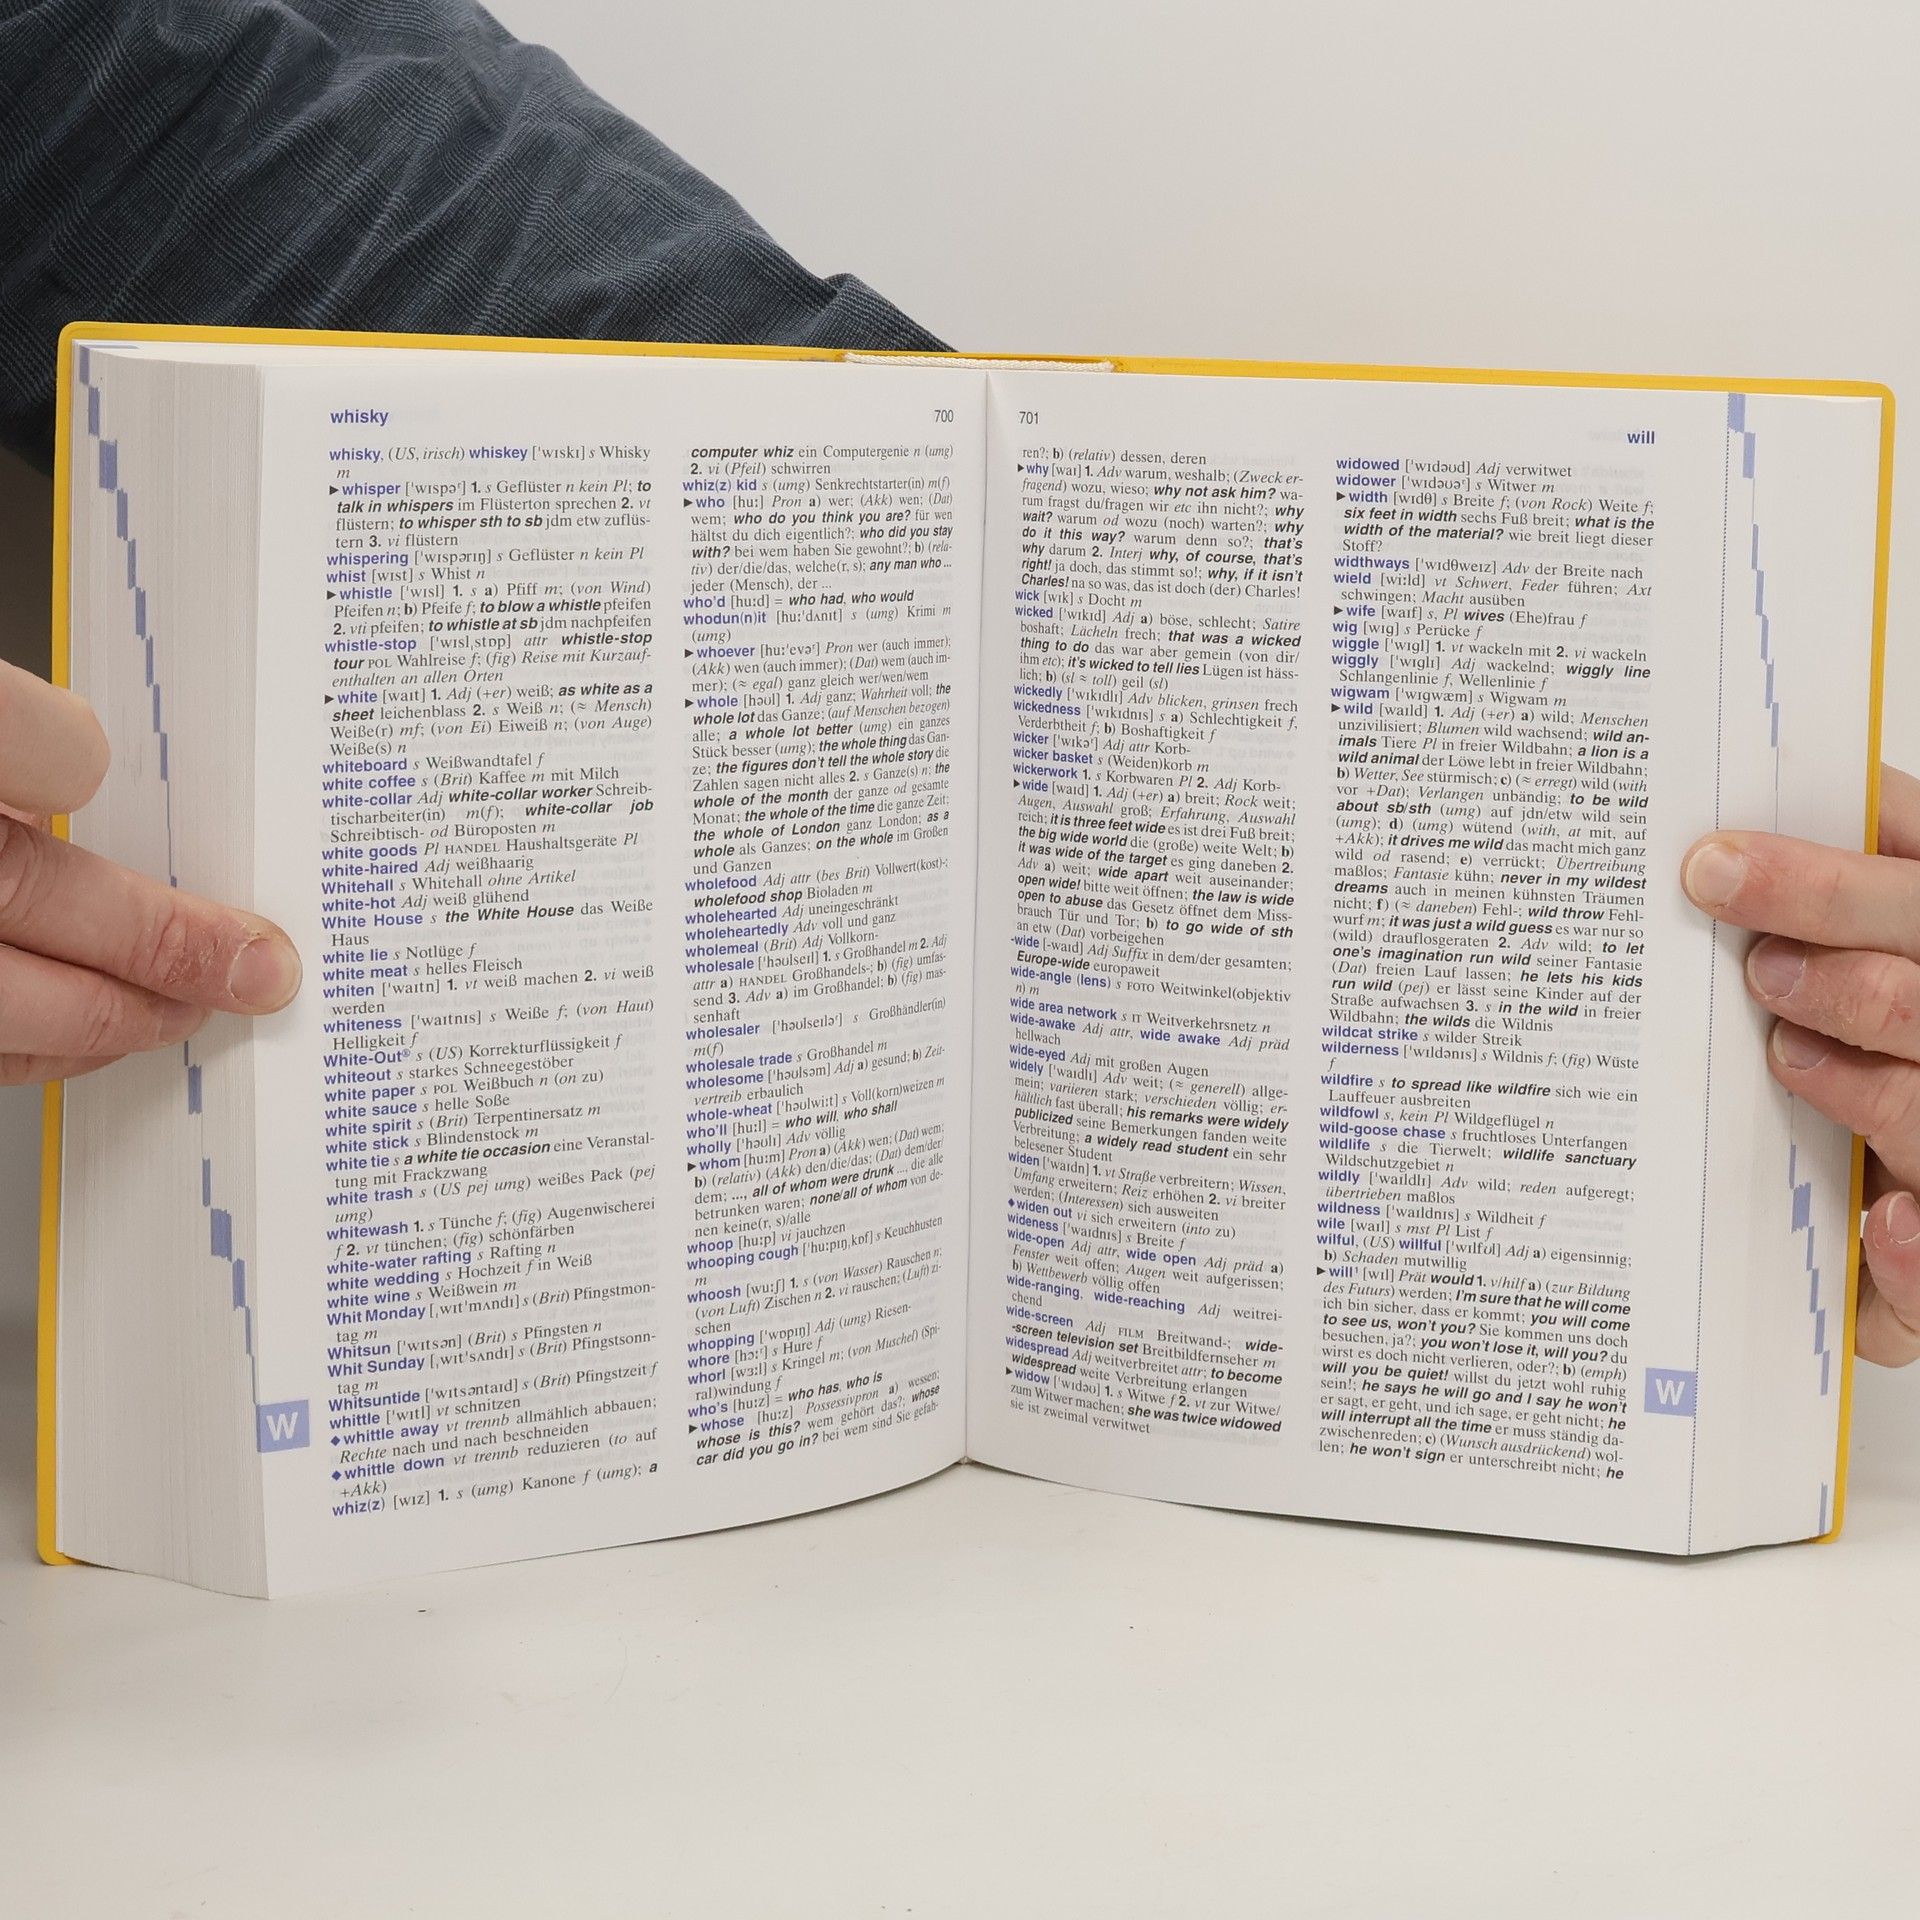 whisky
700
whisky, (US, irisch) whiskey ['wɪskɪ] s Whisky
m
▶whisper ['wɪspəʳ] 1. s Geflüster n kein Pl; to
talk in whispers im Flüsterton sprechen 2. vt
flüstern; to whisper sth to sb jdm etw zuflüs-
tern 3. vi flüstern
whispering ['wɪspərɪŋ] s Geflüster n kein Pl
whist [wɪst] s Whist n
▶whistle ['wɪsl] 1. s a) Pfiff m; (von Wind)
Pfeifen n; b) Pfeife f; to blow a whistle pfeifen
2. vti pfeifen; to whistle at sb jdm nachpfeifen
whistle-stop ['wɪsl,stɒp] attr whistle-stop
tour POL Wahlreise f; (fig) Reise mit Kurzauf-
enthalten an allen Orten
▶white [waɪt] 1. Adj (+er) weiß; as white as a
sheet leichenblass 2. s Weiß n; (≈ Mensch)
Weiße(r) mf; (von Ei) Eiweiß n; (von Auge)
Weiße(s) n
whiteboard s Weißwandtafel f
white coffee s (Brit) Kaffee m mit Milch
white-collar Adj white-collar worker Schreib-
tischarbeiter(in) m(f); white-collar job
Schreibtisch- od Büroposten m
white goods Pl HANDEL Haushaltsgeräte Pl
white-haired Adj weißhaarig
Whitehall s Whitehall ohne Artikel
white-hot Adj weiß glühend
White House s the White House das Weiße
Haus
white lie s Notlüge f
white meat s helles Fleisch
whiten ['waɪtn] 1. vt weiß machen 2. vi weiß
werden
whiteness ['waɪtnɪs] s Weiße f; (von Haut)
Helligkeit f
White-Out® s (US) Korrekturflüssigkeit f
whiteout s starkes Schneegestöber
white paper s POL Weißbuch n (on zu)
white sauce s helle Soße
white spirit s (Brit) Terpentinersatz m
white stick s Blindenstock m
white tie s a white tie occasion eine Veranstal-
tung mit Frackzwang
white trash s (US pej umg) weißes Pack (pej
umg)
whitewash 1. s Tünche f; (fig) Augenwischerei
f 2. vt tünchen; (fig) schönfärben
white-water rafting s Rafting n
white wedding s Hochzeit f in Weiß
white wine s Weißwein m
Whit Monday [,wɪt'mʌndɪ] s (Brit) Pfingstmon-
tag m
Whitsun ['wɪtsən] (Brit) s Pfingsten n
Whit Sunday [,wɪt'sʌndɪ] s (Brit) Pfingstsonn-
tag m
Whitsuntide ['wɪtsəntaɪd] s (Brit) Pfingstzeit f
whittle ['wɪtl] vt schnitzen
◆whittle away vt trennb allmählich abbauen;
Rechte nach und nach beschneiden
◆whittle down vt trennb reduzieren (to auf
+Akk)
whiz(z) [wɪz] 1. s (umg) Kanone f (umg); a
computer whiz ein Computergenie n (umg)
2. vi (Pfeil) schwirren
whiz(z) kid s (umg) Senkrechtstarter(in) m(f)
▶who [huː] Pron a) wer; (Akk) wen; (Dat)
wem; who do you think you are? für wen
hältst du dich eigentlich?; who did you stay
with? bei wem haben Sie gewohnt?; b) (rela-
tiv) der/die/das, welche(r, s); any man who ...
jeder (Mensch), der ...
who'd [huːd] = who had, who would
whodun(n)it [huː'dʌnɪt] s (umg) Krimi m
(umg)
▶whoever [huː'evəʳ] Pron wer (auch immer);
(Akk) wen (auch immer); (Dat) wem (auch im-
mer); (≈ egal) ganz gleich wer/wen/wem
▶whole [həʊl] 1. Adj ganz; Wahrheit voll; the
whole lot das Ganze; (auf Menschen bezogen)
alle; a whole lot better (umg) ein ganzes
Stück besser (umg); the whole thing das Gan-
ze; the figures don't tell the whole story die
Zahlen sagen nicht alles 2. s Ganze(s) n; the
whole of the month der ganze od gesamte
Monat; the whole of the time die ganze Zeit;
the whole of London ganz London; as a
whole als Ganzes; on the whole im Großen
und Ganzen
wholefood Adj attr (bes Brit) Vollwert(kost)-;
wholefood shop Bioladen m
wholehearted Adj uneingeschränkt
wholeheartedly Adv voll und ganz
wholemeal (Brit) Adj Vollkorn-
wholesale ['həʊlseɪl] 1. s Großhandel m 2. Adj
attr a) HANDEL Großhandels-; b) (fig) umfas-
send 3. Adv a) im Großhandel; b) (fig) mas-
senhaft
wholesaler ['həʊlseɪləʳ] s Großhändler(in)
m(f)
wholesale trade s Großhandel m
wholesome ['həʊlsəm] Adj a) gesund; b) Zeit-
vertreib erbaulich
whole-wheat ['həʊlwiːt] s Voll(korn)weizen m
who'll [huːl] = who will, who shall
wholly ['həʊlɪ] Adv völlig
▶whom [huːm] Pron a) (Akk) wen; (Dat) wem;
b) (relativ) (Akk) den/die/das; (Dat) dem/der/
dem; ..., all of whom were drunk ..., die alle
betrunken waren; none/all of whom von de-
nen keine(r, s)/alle
whoop [huːp] vi jauchzen
whooping cough ['huːpɪŋ,kɒf] s Keuchhusten
m
whoosh [wuːʃ] 1. s (von Wasser) Rauschen n;
(von Luft) Zischen n 2. vi rauschen; (Luft) zi-
schen
whopping ['wɒpɪŋ] Adj (umg) Riesen-
whore [hɔːʳ] s Hure f
whorl [wɜːl] s Kringel m; (von Muschel) (Spi-
ral)windung f
who's [huːz] = who has, who is
▶whose [huːz] Possessivpron a) wessen;
whose is this? wem gehört das?; whose
car did you go in? bei wem sind Sie gefah-
W
701
will
ren?; b) (relativ) dessen, deren
▶why [waɪ] 1. Adv warum, weshalb; (Zweck er-
fragend) wozu, wieso; why not ask him? wa-
rum fragst du/fragen wir etc ihn nicht?; why
wait? warum od wozu (noch) warten?; why
do it this way? warum denn so?; that's
why darum 2. Interj why, of course, that's
right! ja doch, das stimmt so!; why, if it isn't
Charles! na so was, das ist doch (der) Charles!
wick [wɪk] s Docht m
wicked ['wɪkɪd] Adj a) böse, schlecht; Satire
boshaft; Lächeln frech; that was a wicked
thing to do das war aber gemein (von dir/
ihm etc); it's wicked to tell lies Lügen ist häss-
lich; b) (sl ≈ toll) geil (sl)
wickedly ['wɪkɪdlɪ] Adv blicken, grinsen frech
wickedness ['wɪkɪdnɪs] s a) Schlechtigkeit f,
Verderbtheit f; b) Boshaftigkeit f
wicker ['wɪkəʳ] Adj attr Korb-
wicker basket s (Weiden)korb m
wickerwork 1. s Korbwaren Pl 2. Adj Korb-
▶wide [waɪd] 1. Adj (+er) a) breit; Rock weit;
Augen, Auswahl groß; Erfahrung, Auswahl
reich; it is three feet wide es ist drei Fuß breit;
the big wide world die (große) weite Welt; b)
it was wide of the target es ging daneben 2.
Adv a) weit; wide apart weit auseinander;
open wide! bitte weit öffnen; the law is wide
open to abuse das Gesetz öffnet dem Miss-
brauch Tür und Tor; b) to go wide of sth
an etw (Dat) vorbeigehen
-wide [-waɪd] Adj Suffix in dem/der gesamten;
Europe-wide europaweit
wide-angle (lens) s FOTO Weitwinkel(objektiv
n) m
wide area network s IT Weitverkehrsnetz n
wide-awake Adj attr, wide awake Adj präd
hellwach
wide-eyed Adj mit großen Augen
widely ['waɪdlɪ] Adv weit; (≈ generell) allge-
mein; variieren stark; verschieden völlig; er-
hältlich fast überall; his remarks were widely
publicized seine Bemerkungen fanden weite
Verbreitung; a widely read student ein sehr
belesener Student
widen ['waɪdn] 1. vt Straße verbreitern; Wissen,
Umfang erweitern; Reiz erhöhen 2. vi breiter
werden; (Interessen) sich ausweiten
◆widen out vi sich erweitern (into zu)
wideness ['waɪdnɪs] s Breite f
wide-open Adj attr, wide open Adj präd a)
Fenster weit offen; Augen weit aufgerissen;
b) Wettbewerb völlig offen
wide-ranging, wide-reaching Adj weitrei-
chend
wide-screen Adj FILM Breitwand-; wide-
-screen television set Breitbildfernseher m
widespread Adj weitverbreitet attr; to become
widespread weite Verbreitung erlangen
▶widow ['wɪdəʊ] 1. s Witwe f 2. vt zur Witwe/
zum Witwer machen; she was twice widowed
sie ist zweimal verwitwet
widowed ['wɪdəʊd] Adj verwitwet
widower ['wɪdəʊəʳ] s Witwer m
▶width [wɪdθ] s Breite f; (von Rock) Weite f;
six feet in width sechs Fuß breit; what is the
width of the material? wie breit liegt dieser
Stoff?
widthways ['wɪdθweɪz] Adv der Breite nach
wield [wiːld] vt Schwert, Feder führen; Axt
schwingen; Macht ausüben
▶wife [waɪf] s, Pl wives (Ehe)frau f
wig [wɪg] s Perücke f
wiggle ['wɪgl] 1. vt wackeln mit 2. vi wackeln
wiggly ['wɪglɪ] Adj wackelnd; wiggly line
Schlangenlinie f, Wellenlinie f
wigwam ['wɪgwæm] s Wigwam m
▶wild [waɪld] 1. Adj (+er) a) wild; Menschen
unzivilisiert; Blumen wild wachsend; wild an-
imals Tiere Pl in freier Wildbahn; a lion is a
wild animal der Löwe lebt in freier Wildbahn;
b) Wetter, See stürmisch; c) (≈ erregt) wild (with
vor +Dat); Verlangen unbändig; to be wild
about sb/sth (umg) auf jdn/etw wild sein
(umg); d) (umg) wütend (with, at mit, auf
+Akk); it drives me wild das macht mich ganz
wild od rasend; e) verrückt; Übertreibung
maßlos; Fantasie kühn; never in my wildest
dreams auch in meinen kühnsten Träumen
nicht; f) (≈ daneben) Fehl-; wild throw Fehl-
wurf m; it was just a wild guess es war nur so
(wild) drauflosgeraten 2. Adv wild; to let
one's imagination run wild seiner Fantasie
(Dat) freien Lauf lassen; he lets his kids
run wild (pej) er lässt seine Kinder auf der
Straße aufwachsen 3. s in the wild in freier
Wildbahn; the wilds die Wildnis
wildcat strike s wilder Streik
wilderness ['wɪldənɪs] s Wildnis f; (fig) Wüste
f
wildfire s to spread like wildfire sich wie ein
Lauffeuer ausbreiten
wildfowl s, kein Pl Wildgeflügel n
wild-goose chase s fruchtloses Unterfangen
wildlife s die Tierwelt; wildlife sanctuary
Wildschutzgebiet n
wildly ['waɪldlɪ] Adv wild; reden aufgeregt;
übertrieben maßlos
wildness ['waɪldnɪs] s Wildheit f
wile [waɪl] s mst Pl List f
wilful, (US) willful ['wɪlfʊl] Adj a) eigensinnig;
b) Schaden mutwillig
▶will¹ [wɪl] Prät would 1. v/hilf a) (zur Bildung
des Futurs) werden; I'm sure that he will come
ich bin sicher, dass er kommt; you will come
to see us, won't you? Sie kommen uns doch
besuchen, ja?; you won't lose it, will you? du
wirst es doch nicht verlieren, oder?; b) (emph)
will you be quiet! willst du jetzt wohl ruhig
sein!; he says he will go and I say he won't
er sagt, er geht, und ich sage, er geht nicht; he
will interrupt all the time er muss ständig da-
zwischenreden; c) (Wunsch ausdrückend) wol-
len; he won't sign er unterschreibt nicht; he
W